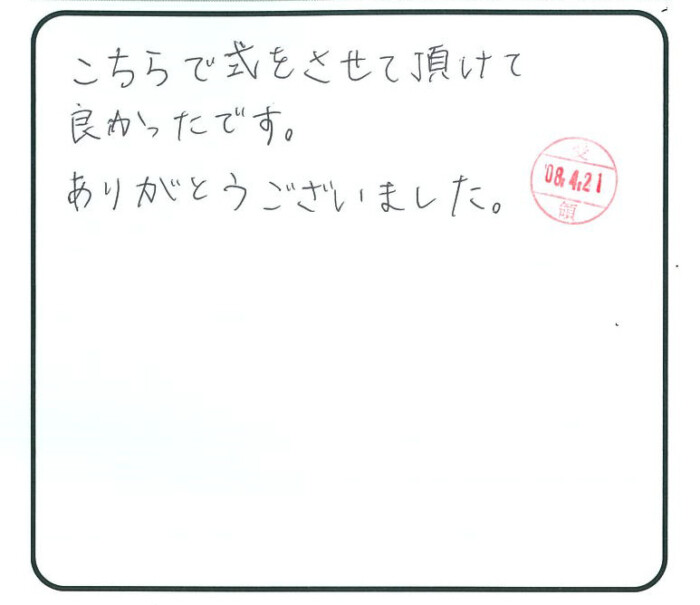 こちらで式をさせて頂けて
良かったです。
ありがとうございました。
受
'08.4.21
領